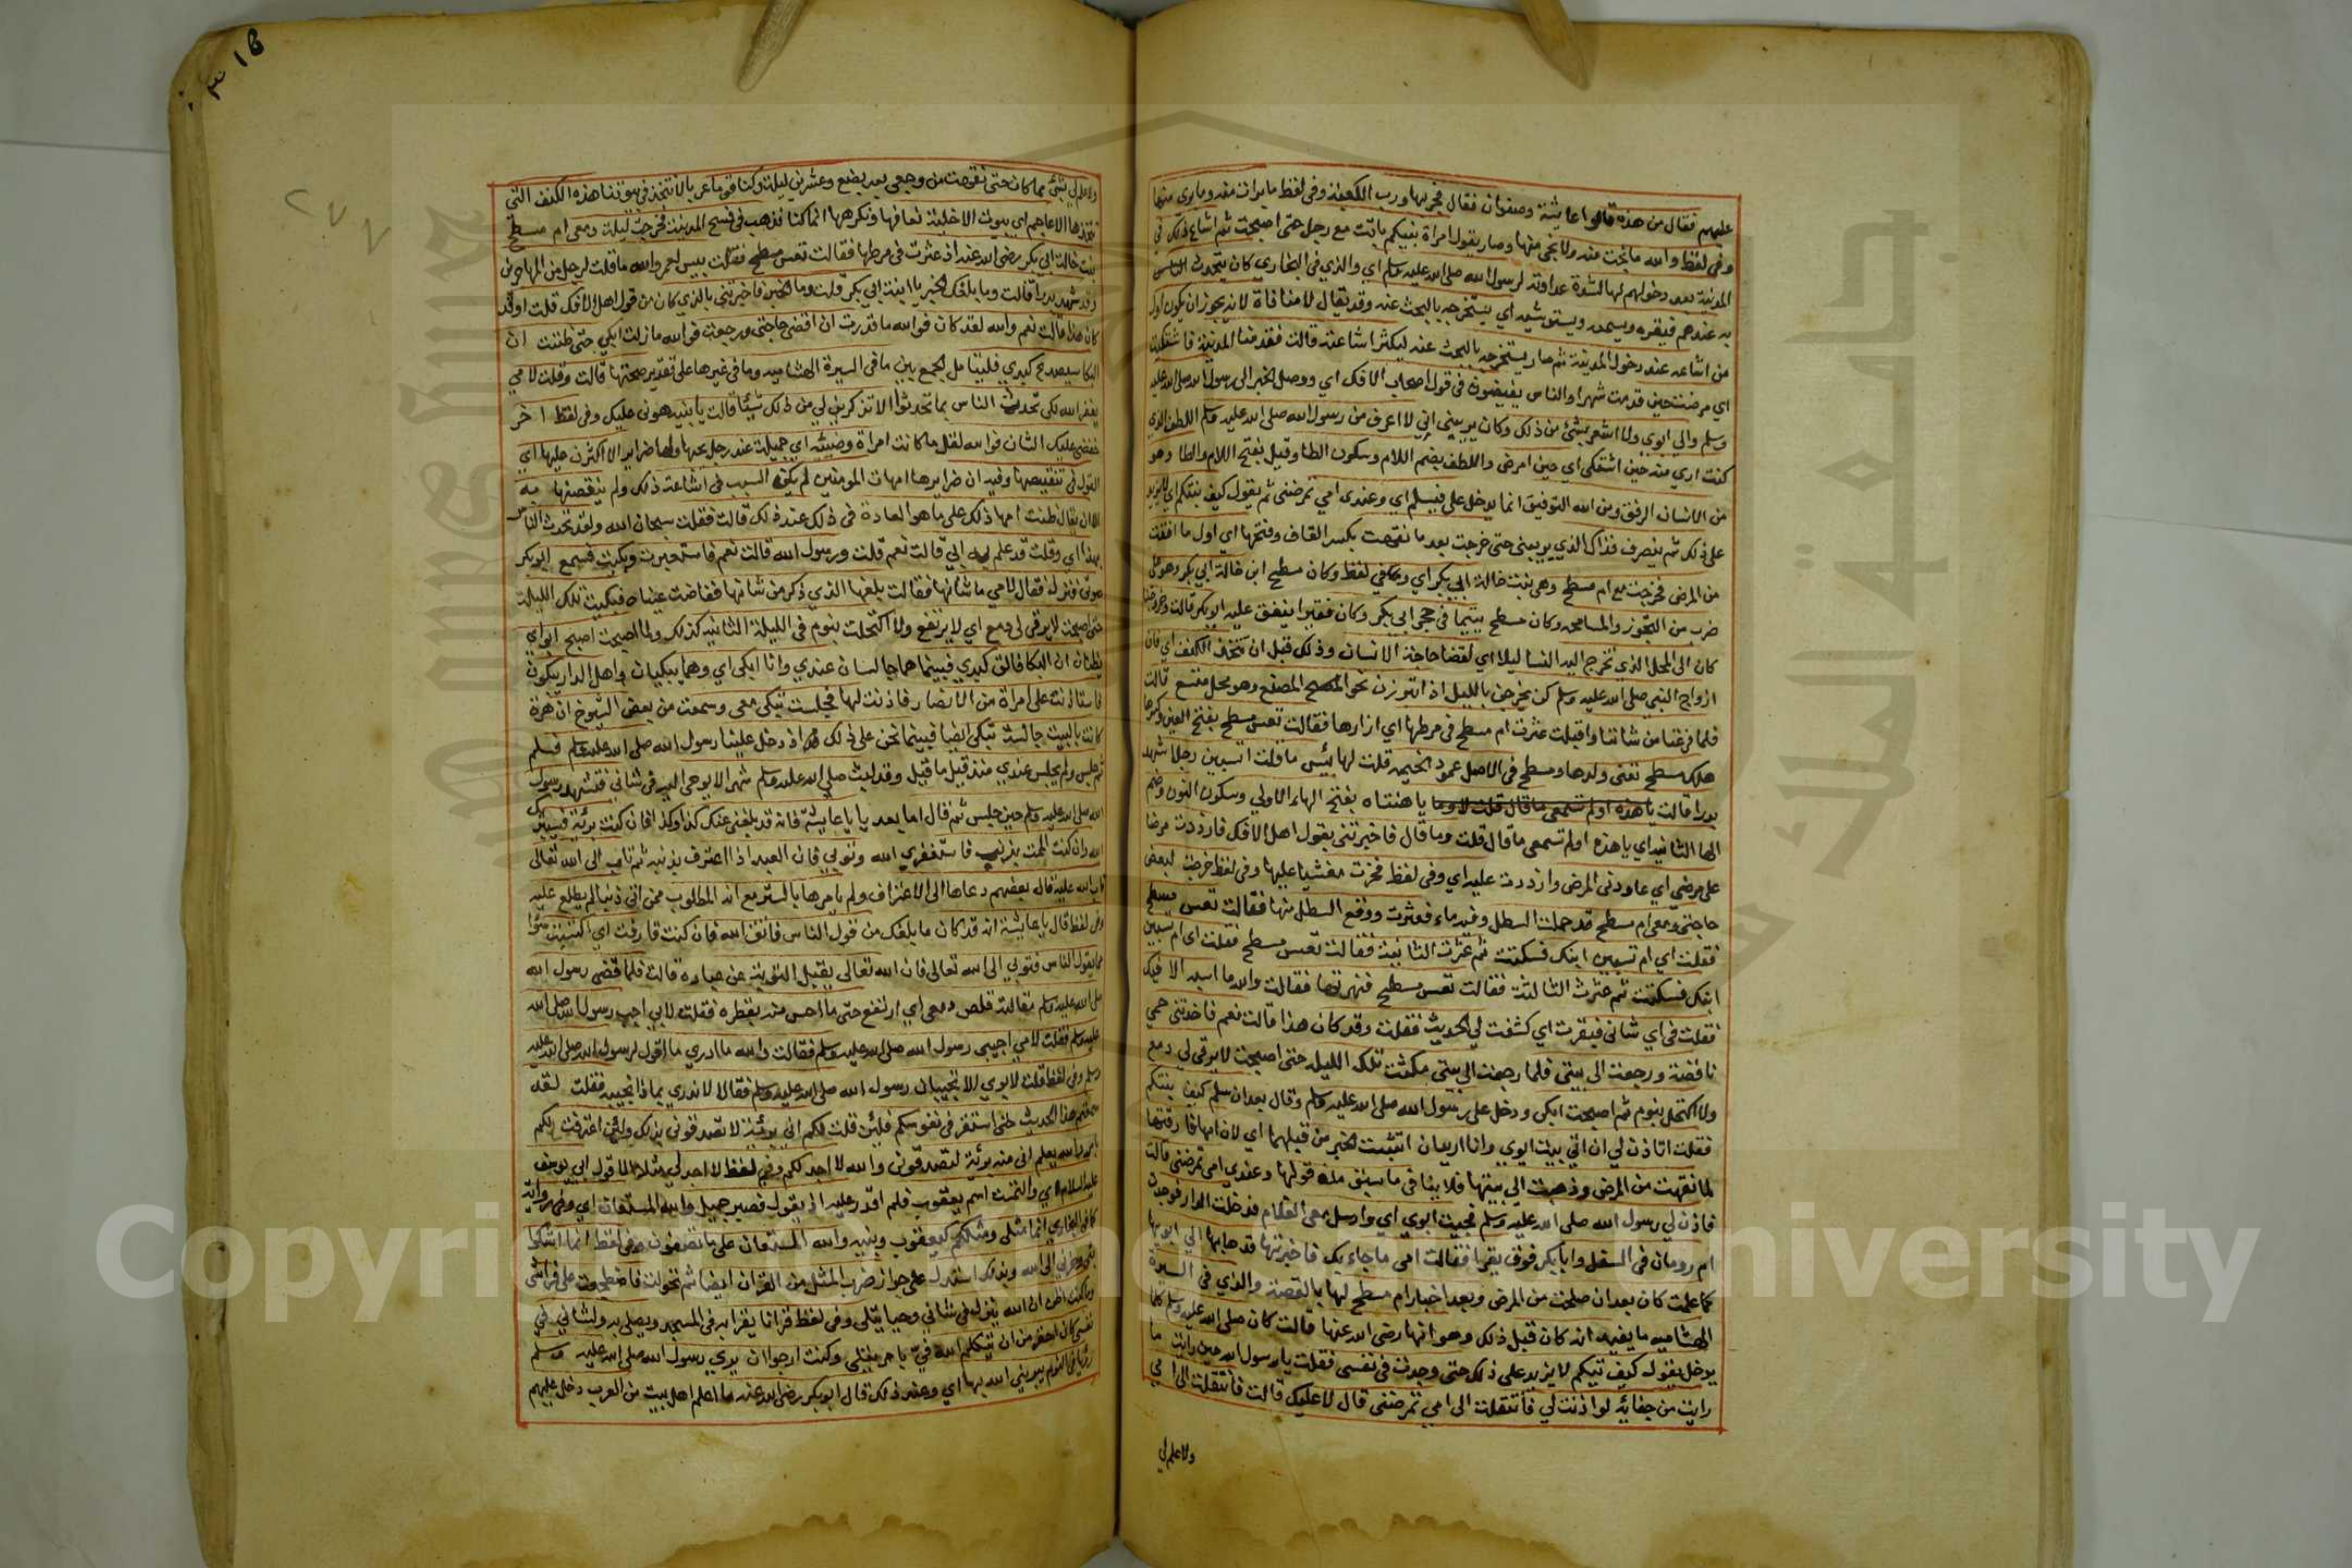 عليهم فقال من هذه قالوا عايشة وصفوان فقال فجر بها ورب الكعبة وفى لفظ ما برات منه وما برى منها
وفى لفظ والله ما نجت منه ولا نجى منها وصار يقول امراة نبيكم باتت مع رجل حتى اصبحت ثم اشاع ذلك فى
المدينة بعد دخولهم لها لشدة عداوته لرسول الله صلى الله عليه وسلم اي والذي فى البخاري كان يتحدث الناس
به عندهم فيقره ويسمعه ويستوشيه اي يستخرجه بالبحث عنه وقد يقال لا منافاة لانه يجوز ان يكون اول
من اشاعه عند دخول المدينة ثم صار يستخرجه بالبحث عنه ليكثر اشاعته قالت فقدمنا المدينة فاشتكيت
اي مرضت حين قدمت شهرا والناس يفيضون فى قول اصحاب الافك اي ووصل الخبر الى رسول الله صلى الله عليه
وسلم والى ابوي ولا اشعر بشئ من ذلك وكان يريبنى انى لا اعرف من رسول الله صلى الله عليه وسلم اللطف الذي
كنت اري منه حين اشتكى اي حين امرض واللطف بضم اللام وسكون الطا وقيل بفتح اللام والطا وهو
من الانسان الرفق ومن الله التوفيق انما يدخل على فيسلم اي وعندى امي تمرضنى ثم يقول كيف تيكم اي لا يزيد
على ذلك ثم ينصرف فذاك الذي يريبنى حتى خرجت بعد ما نقهت بكسر القاف وفتحها اي اول ما افقت
من المرض فخرجت مع ام مسطح وهى بنت خالة ابي بكر اي وفى لفظ وكان مسطح ابن خالة ابي بكر وهو على
ضرب من التجوز والمسامحه وكان مسطح يتيما فى حجر ابي بكر وكان فقيرا ينفق عليه ابو بكر قالت وخروجنا
كان الى المحل الذي تخرج اليه النسا ليلا اي لقضا حاجة الانسان وذلك قبل ان تتخذ الكنف اي فان
ازواج النبي صلى الله عليه وسلم كن يخرجن بالليل اذا تبرزن نحو المصنع وهو محل متسع قالت
فلما فرغنا من شاننا واقبلت عثرت ام مسطح فى مرطها اي ازارها فقالت تعس مسطح بفتح العين وكسرها
هلك مسطح تعنى ولدها ومسطح فى الاصل عمود الخيمه قلت لها بئس ما قلت اتسبين رجلا شهد
بدرا قالت يا هنتاه بفتح الهاء الاولى وسكون النون وضم
الها الثانيه اي يا هذه اولم تسمعى ما قال قلت وما قال فاخبرتنى بقول اهل الافك فازددت مرضا
على مرضى اي عاودنى المرض وازددت عليه اي وفى لفظ فخرت مغشيا عليها وفى لفظ خرجت لبعض
حاجتى ومعى ام مسطح قد حملت السطل وفيه ماء فعثرت ووقع السطل منها فقالت تعس مسطح
فقلت اي ام تسبين ابنك فسكتت ثم عثرت الثانية فقالت تعس مسطح فقلت اي ام تسبين
ابنك فسكتت ثم عثرت الثالثة فقالت تعس مسطح فنهرتها فقالت والله ما اسبه الا فيك
فقلت فى اي شانى فبقرت اي كشفت لي الحديث فقلت وقد كان هذا قالت نعم فاخذتنى حمى
نافضة ورجعت الى بيتى فلما رجعت الى بيتى مكثت تلك الليله حتى اصبحت لا يرقى لي دمع
ولا اكتحل بنوم ثم اصبحت ابكى ودخل على رسول الله صلى الله عليه وسلم وقال بعد ان سلم كيف تيكم
فقلت اتاذن لي ان اتي بيت ابوي وانا اريد ان اتثبت الخبر من قبلهما اي لان امها فارقتها
لما نقهت من المرض وذهبت الى بيتها فلا ينافى ما سبق من قولها وعندي امى تمرضنى قالت
فاذن لي رسول الله صلى الله عليه وسلم فجيت ابوي اي وارسل معى الغلام فدخلت الدار فوجدت
ام رومان فى السفل وابا بكر فوق يقرا فقالت امى ما جاء بك فاخبرتها
كما علمت كان بعد ان صلحت من المرض وبعد اخبار ام مسطح لها بالقصة والذي فى السيرة
الهشاميه ما يفيد انه كان قبل ذلك وهو انها رضى الله عنها قالت كان صلى الله عليه وسلم كلما
يدخل يقول كيف تيكم لا يزيد على ذلك حتى وجدت فى نفسى فقلت يا رسول الله حين رايت ما
رايت من جفائه لو اذنت لي فانتقلت الى امى تمرضنى قال لا عليك قالت فانتقلت الى امي
ولا علم لي
٢٧٧
ولا علم لي بشئ مما كان حتى نقهت من وجعى بعد بضع وعشرين ليلة وكنا قوما عربا لا نتخذ فى بيوتنا هذه الكنف التى
تتخذها الاعاجم اي بيوت الاخلية نعافها ونكرهها انما كنا نذهب فى فسح المدينة فخرجت ليلة ومعى ام مسطح
بنت خالة ابي بكر رضى الله عنه اذ عثرت فى مرطها فقالت تعس مسطح فقلت بيس لعمر والله ما قلت لرجل من المهاجرين
وقد شهد بدرا قالت وما بلغك الخبر يا ابنة ابي بكر قلت وما الخبر فاخبرتنى بالذي كان من قول اهل الافك قلت اوقد
كان هذا قالت نعم والله لقد كان فوالله ما قدرت ان اقضى حاجتى ورجعت فوالله ما زلت ابكي حتى ظننت ان
البكا سيصدع كبدي فليتامل الجمع بين ما فى السيرة الهشاميه وما فى غيرها على تقدير صحتها قالت وقلت لامي
يغفر الله لكى تحدث الناس بما تحدثوا الا تذكرين لي من ذلك شيئا قالت يا بنيه هونى عليك وفى لفظ اخر
خفضى عليك الشان فوالله لقل ما كانت امراة وضيئه اي جميلة عند رجل يحبها ولها ضراير الا اكثرن عليها اي
القول فى تنقيصها وفيه ان ضرايرها امهات المومنين لم يكن السبب فى اشاعة ذلك ولم ينقصنها به
الا ان يقال ظنت امها ذلك على ما هو العادة فى ذلك عند ذلك قالت فقلت سبحان الله ولقد تحدث الناس
بهذا اي وقلت قد علم به ابي قالت نعم قلت ورسول الله قالت نعم فاستعبرت وبكيت فسمع ابو بكر
صوتى فنزل فقال لامي ما شانها فقالت بلغها الذي ذكر من شانها ففاضت عيناه فبكيت تلك الليلة
حتى اصبحت لا يرقى لى دمع اي لا يرتفع ولا اكتحلت بنوم فى الليلة الثانيه كذلك ولما اصبحت اصبح ابواي
يظنان ان البكا فالق كبدي فبينما هما جالسان عندي وانا ابكى اي وهما يبكيان واهل الدار يبكون
فاستاذنت على امراة من الانصار فاذنت لها فجلست تبكى معى وسمعت من بعض الشيوخ ان هرة
كانت بالبيت جالسة تبكى ايضا فبينما نحن على ذلك اذ دخل علينا رسول الله صلى الله عليه وسلم فسلم
ثم جلس ولم يجلس عندي منذ قيل ما قيل وقد لبث صلى الله عليه وسلم شهرا لا يوحى اليه فى شانى فتشهد رسول
الله صلى الله عليه وسلم حين جلس ثم قال اما بعد يا عايشة فانه قد بلغنى عنك كذا وكذا فان كنت برئة فسيبرئك
الله وان كنت الممت بذنب فاستغفري الله وتوبي فان العبد اذا اعترف بذنبه ثم تاب الى الله تعالى
تاب الله عليه قال بعضهم دعاها الى الاعتراف ولم يامرها بالستر مع ان المطلوب ممن اتى ذنبا لم يطلع عليه
وفى لفظ قال يا عايشة انه قد كان ما بلغك من قول الناس فاتقى الله فان كنت قارفت اي اكتسبت سوا
مما يقول الناس فتوبي الى الله تعالى فان الله تعالى يقبل التوبة عن عباده قالت فلما قضى رسول الله
صلى الله عليه وسلم مقالته قلص دمعى اي ارتفع حتى ما احس منه بقطره فقلت لابي اجب رسول الله صلى الله
عليه وسلم فقلت لامي اجيبى رسول الله صلى الله عليه وسلم فقالت والله ما ادري ما اقول لرسول الله صلى الله عليه
وسلم وفى لفظ قلت لابوي الا تجيبان رسول الله صلى الله عليه وسلم فقالا لا ندري بماذا نجيبه فقلت لقد
سمعتم هذا الحديث حتى استقر فى نفوسكم فلئن قلت لكم انى بريئة لا تصدقونى بذلك ولئن اعترفت لكم
بامر والله يعلم انى منه بريئة لتصدقونى والله لا اجد لكم وفى لفظ لا اجد لي مثلا الا قول ابي يوسف
عليه السلام اي والتمست اسم يعقوب فلم اقدر عليه اذ يقول فصبر جميل والله المستعان اي وفى رواية
كما فى البخاري انما مثلى ومثلكم كيعقوب وبنيه والله المستعان على ما تصفون وفى لفظ انما اشكوا
بثي وحزني الى الله وبذلك استدل على جواز ضرب المثل من القران ايضا ثم تحولت فاضطجعت على فراشى
وما كنت اظن ان الله ينزل فى شانى وحيا يتلى وفى لفظ قرانا يقرا به فى المسجد ويصلى به ولشانى فى
نفسى كان احقر من ان يتكلم الله فيّ بامر يتلى وكنت ارجوا ان يري رسول الله صلى الله عليه وسلم
رؤيا فى النوم يبرئنى الله بها اي وعند ذلك قال ابو بكر رضى الله عنه ما اعلم اهل بيت من العرب دخل عليهم
Copyright © King Saud University
جامعة الملك سعود